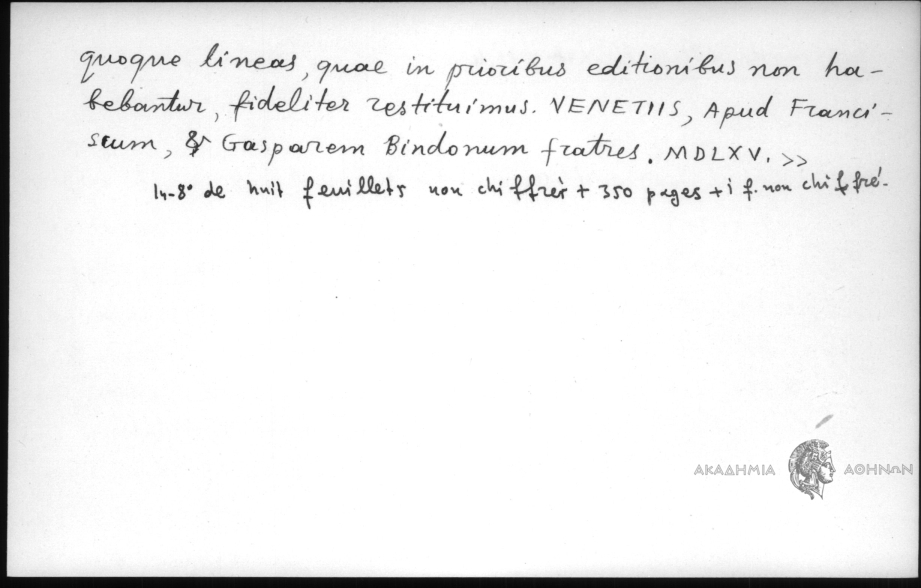 quoque lineas, quae in prioribus editionibus non ha-
bebantur, fideliter restituimus. VENETIIS, Apud Franci-
scum, & Gasparem Bindonum fratres. MDLXV. >>
In-8° de huit feuillets non chiffrés + 350 pages + 1 f. non chiffré.
ΑΚΑΔΗΜΙΑ ΑΘΗΝΩΝ